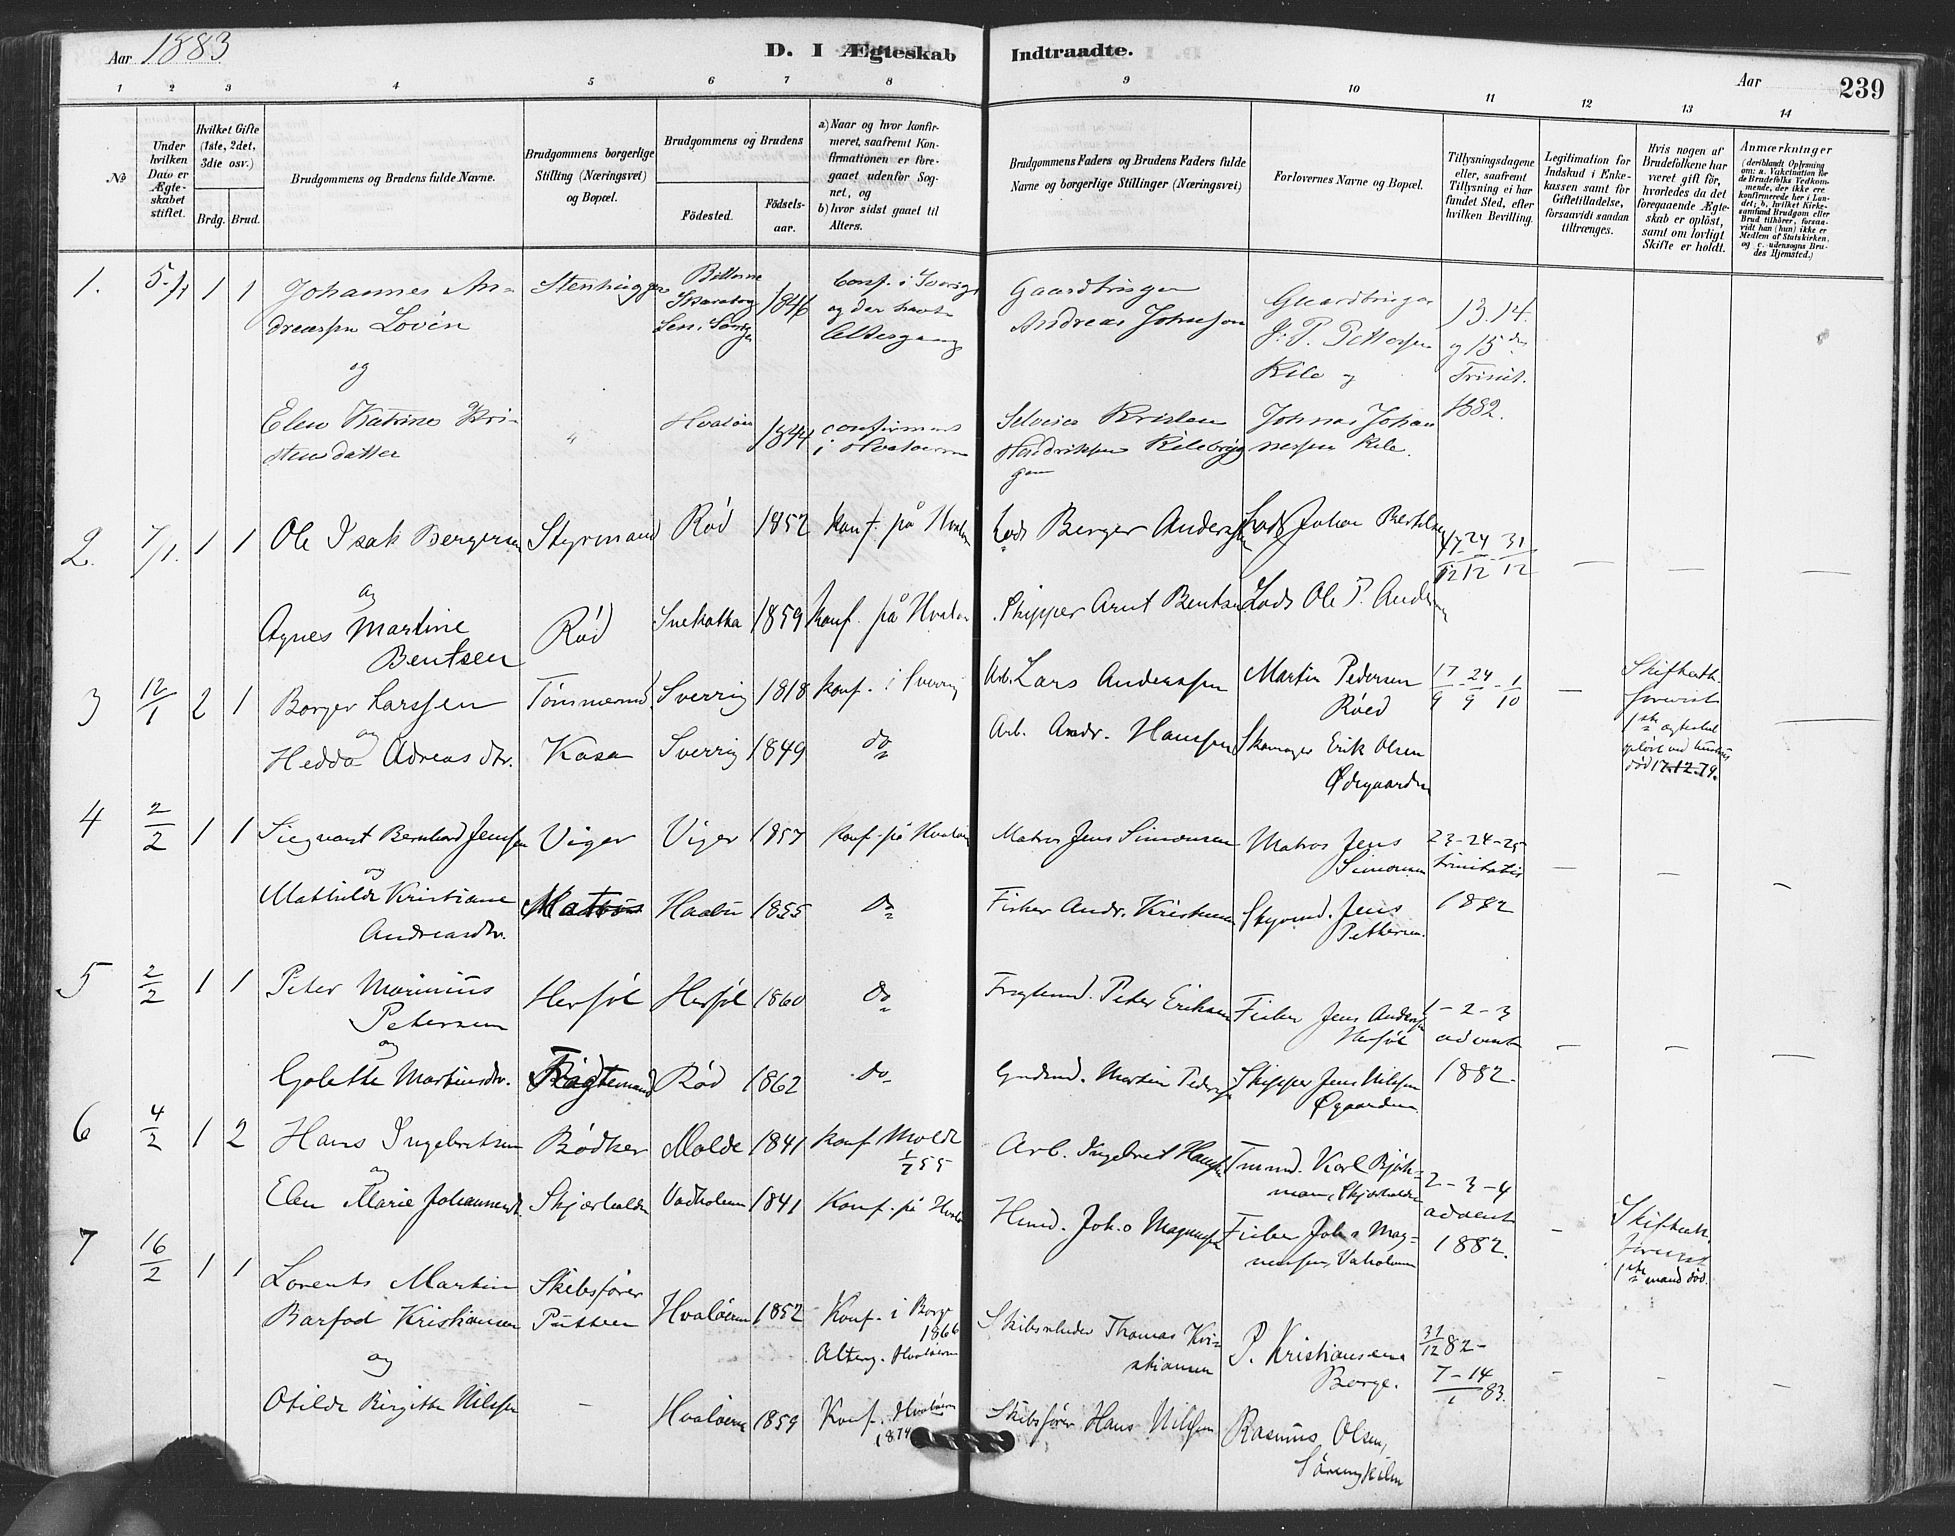 Aar 1883
D. I Ægteskab Indtraadte.
Aar
239
1 2 3 4 5 6 7 8 9 10 11 12 13 14
No
Under hvilken Dato er Ægteskabet stiftet.
Hvilket Gifte (1ste, 2det, 3die osv.)
Brdg. Brud.
Brudgommens og Brudens fulde Navne.
Brudgommens borgerlige Stilling (Næringsvei) og Bopæl.
Brudgommens og Brudens
Fødested.
Fødsels-aar.
a) Naar og hvor konfirmeret, saafremt Konfirmationen er foregaaet udenfor Sognet, og
b) hvor sidst gaaet til Alters.
Brudgommens Faders og Brudens Faders fulde Navne og borgerlige Stillinger (Næringsvei)
Forlovernes Navne og Bopæl.
Tillysningsdagene eller, saafremt Tillysning ei har fundet Sted, efter hvilken Bevilling.
Legitimation for Indskud i Enkekassen samt for Giftetilladelse, forsaavidt saadan tiltrænges.
Hvis nogen af Brudefolkene har været gift før, hvorledes da det foregaaende Ægteskab er opløst, samt om lovligt Skifte er holdt.
Anmærkninger
(deriblandt Oplysning om: a. Vaccination for de Brudefolks Vedkommende, der ikke ere konfirmerede her i Landet; b. hvilket Kirkesamfund Brudgom eller Brud tilhører, forsaavidt han (hun) ikke er Medlem af Statskirken, og c. udensogns Brudes Hjemsted.)
1. 5/1 1 1 Johannes An- Stenhugger 1846 Conf. i Sverige Gaardbruger Gaardbruger 13. 14.
dreassen Lovén og der havt Andreas Johnsson J. P. Pettersen og 15 de
og Altergang Kile og Trinit.
Elen Katrine Kri- " Hvaløer 1844 confirmert Kristen Johnas Johan 1882.
stensdatter i Hvaløerne Hendriksen nessen Kile.
2. 7/1. 1 1 Ole Isak Bergersen Styrmand Rød 1852 Konf. på Hvaler Lods Berger Andersen Lods Johan 17/12 24/12 31/12 – – –
og
Agnes Martine Rød Snekotka 1859 Konf. på Hvaler Skipper Arnt Bentsen Lods Ole P. Andersen
Bentsen
3 12/1 2 1 Borger Larssen Tømmermd. Sverrig 1818 Konf. i Sverrig Arb. Lars Anderssen Martin Pedersen 17/9 - 24/9 - 1/10 – Skifteatt.
og Røed forevist
Hedda Adreasdtr. Kasa Sverrig 1849 do Arb. Andr. Hanssen Erik Olsen 1ste
Ødegaarden død 17.12.79.
4 2/2 1 1 Bernhard Jenssen Viger Viger 1857 Konf. på Hvaløer Matros Jens Simonsen Matros Jens 23-24-25
og Simonsen trinitatis – – –
Mathilde Kristiane Matros 1855 Do Fisker Andr. Kristiansen Jens 1882
Andreasdtr. Pettersen.
5 2/2 1 1 Peter Marinius Herføl Herføl 1860 Do Peter Eriksen Fisker Jens Andersen 1-2-3
Petersen Herføl advent
og – – –
Golette Martinsdtr. Fragtemand Rød 1862 Do Martin Pedersen Skipper Jens Nilssen 1882
6 4/2 1 2 Hans Ingebretsen Bødker Molde 1841 Konf. Molde Arb. Ingebret Hanssen Karl
og 1/7 55 Skjærhalden 2-3-4
Elen Marie Johannesdt. Skjærhalden Vadholmen 1841 Konf. på Hvaler Joh.s Magnussen Fisker Joh.s Mag- advent – Skifteatt.
nussen, 1882. forevist
1ste mand død.
7 16/2 1 1 Lorents Martin Skibsfører
Barfod Kristiansen Putten Hvaløerne 1852 Konf. i Borge 1866 Skibsreder Thomas Kri- P. Kristiansen 31/12 82 -
og Alterg. Hvaløerne stiansen Borge. 7-14/1 83. – – –
Otilde Birgitte Nilssen – Hvaløerne 1859 Konf. Hvaløerne 1874 Skibsfører Hans Nilssen Rasmus Olsen,